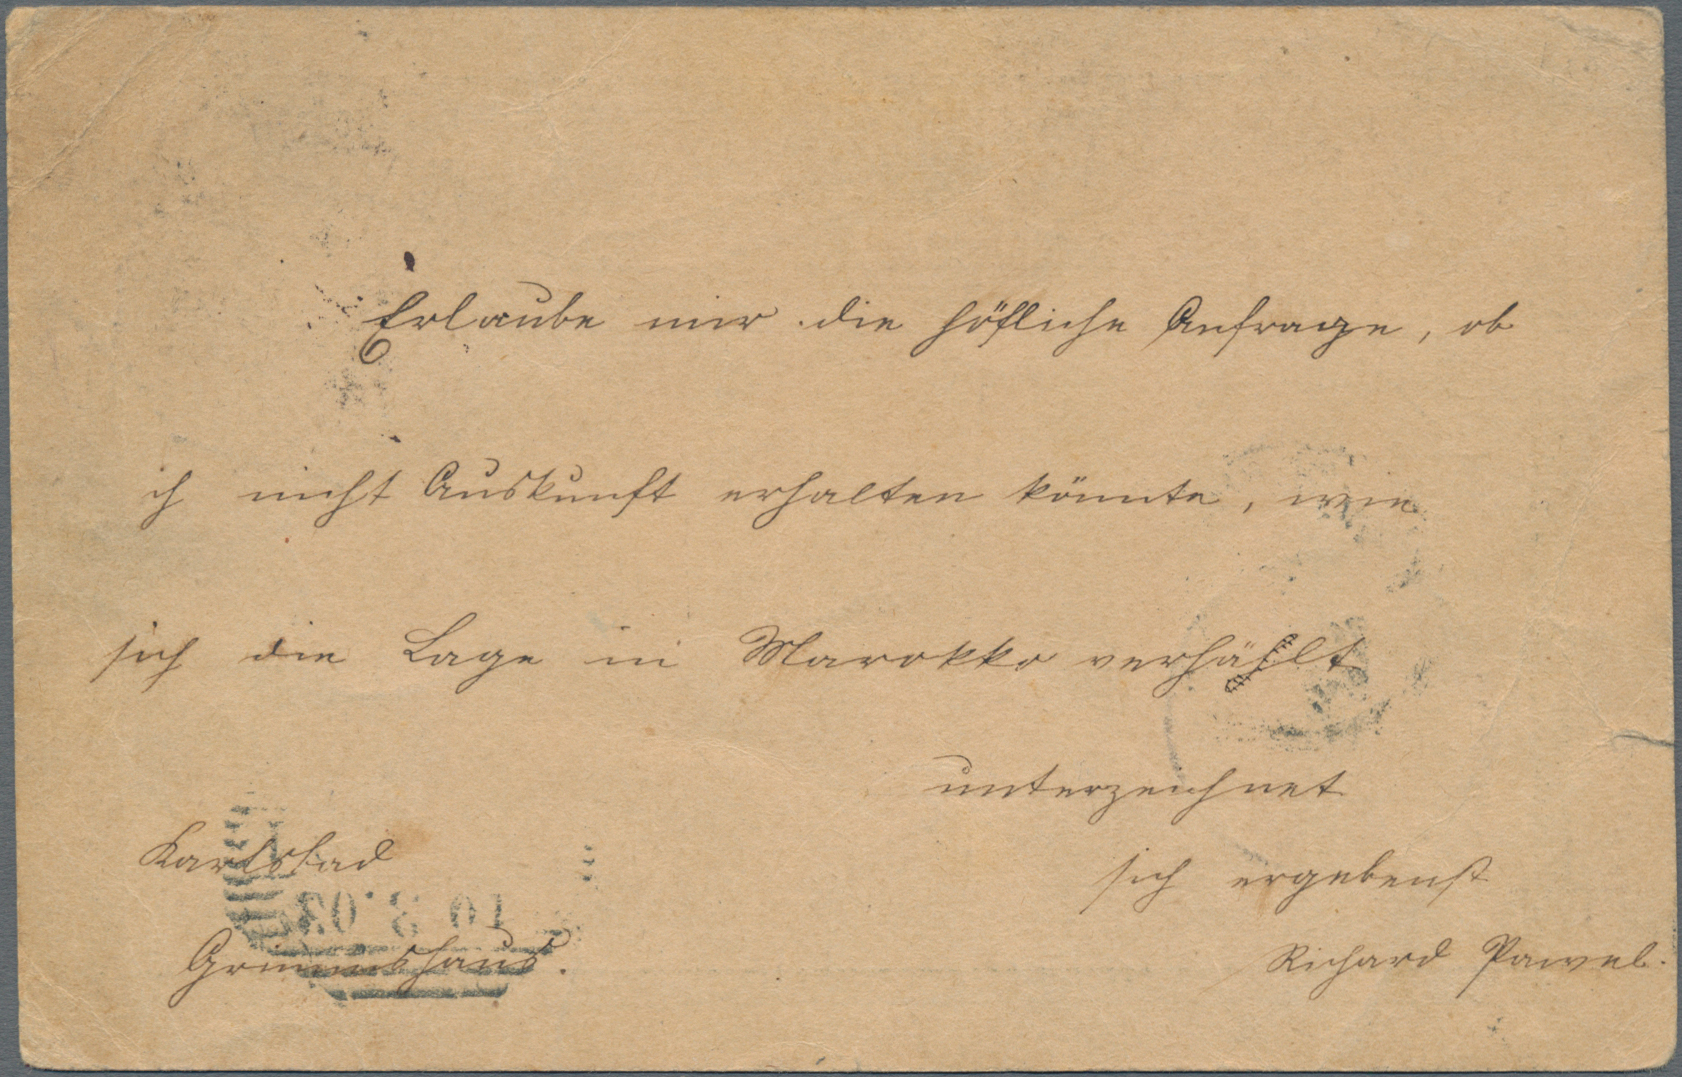 Erlaube mir die höfliche Anfrage, ob
ich nicht Auskunft erhalten könnte, wie
sich die Lage in Marokko verhält
unterzeichnet
Karlsbad
sich ergebenst
10 3 03
Grimmshaus.
Richard Pawel.